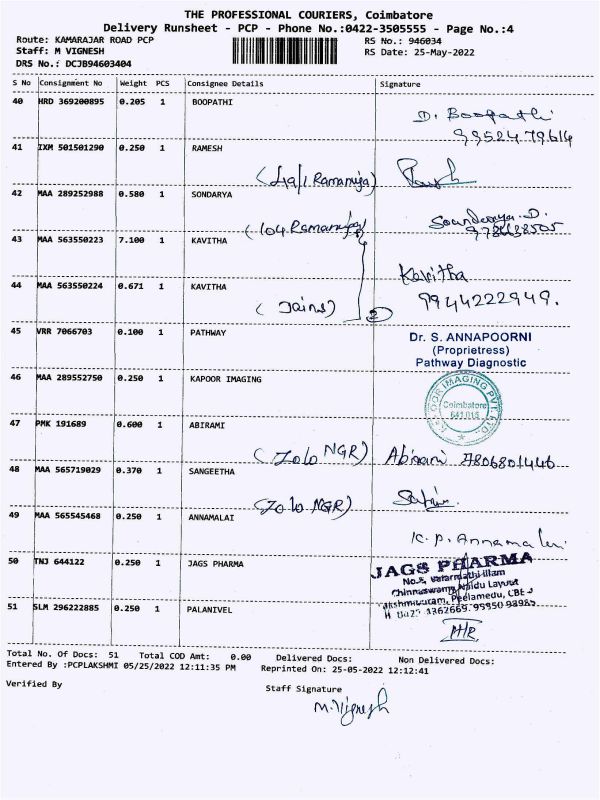 THE PROFESSIONAL COURIERS, Coimbatore
Delivery Runsheet - PCP - Phone No.:0422-3505555 - Page No.:4
Route: KAMARAJAR ROAD PCP RS No.: 946034
Staff: M VIGNESH RS Date: 25-May-2022
DRS No.: DCJB94603404
S No Consignment No Weight PCS Consignee Details Signature
40 HRD 369200895 0.205 1 BOOPATHI
D. Boopathi
9952479614
41 IXM 501501290 0.250 1 RAMESH
(49/1 Ramanuja)
42 MAA 289252988 0.580 1 SONDARYA
Soundarya. D.
(104 Ramanuja)
43 MAA 563550223 7.100 1 KAVITHA
Kavitha
44 MAA 563550224 0.671 1 KAVITHA
9944222949.
(Jains) 2
45 VRR 7066703 0.100 1 PATHWAY
Dr. S. ANNAPOORNI
(Proprietress)
Pathway Diagnostic
46 MAA 289552750 0.250 1 KAPOOR IMAGING
KAPOOR IMAGING PVT. LTD.
Coimbatore
641 015
47 PMK 191689 0.600 1 ABIRAMI
(Zolo NGR) Abirami 7806801446
48 MAA 565719029 0.370 1 SANGEETHA
(Zolo NGR)
49 MAA 565545468 0.250 1 ANNAMALAI
K. P. Annamalai
50 TNJ 644122 0.250 1 JAGS PHARMA
JAGS PHARMA
Chinnaswamy Naidu Layout
Peelamedu, CBE
51 SLM 296222885 0.250 1 PALANIVEL
Total No. Of Docs: 51 Total COD Amt: 0.00 Delivered Docs: Non Delivered Docs:
Entered By :PCPLAKSHMI 05/25/2022 12:11:35 PM Reprinted On: 25-05-2022 12:12:41
Verified By Staff Signature
M. Vignesh